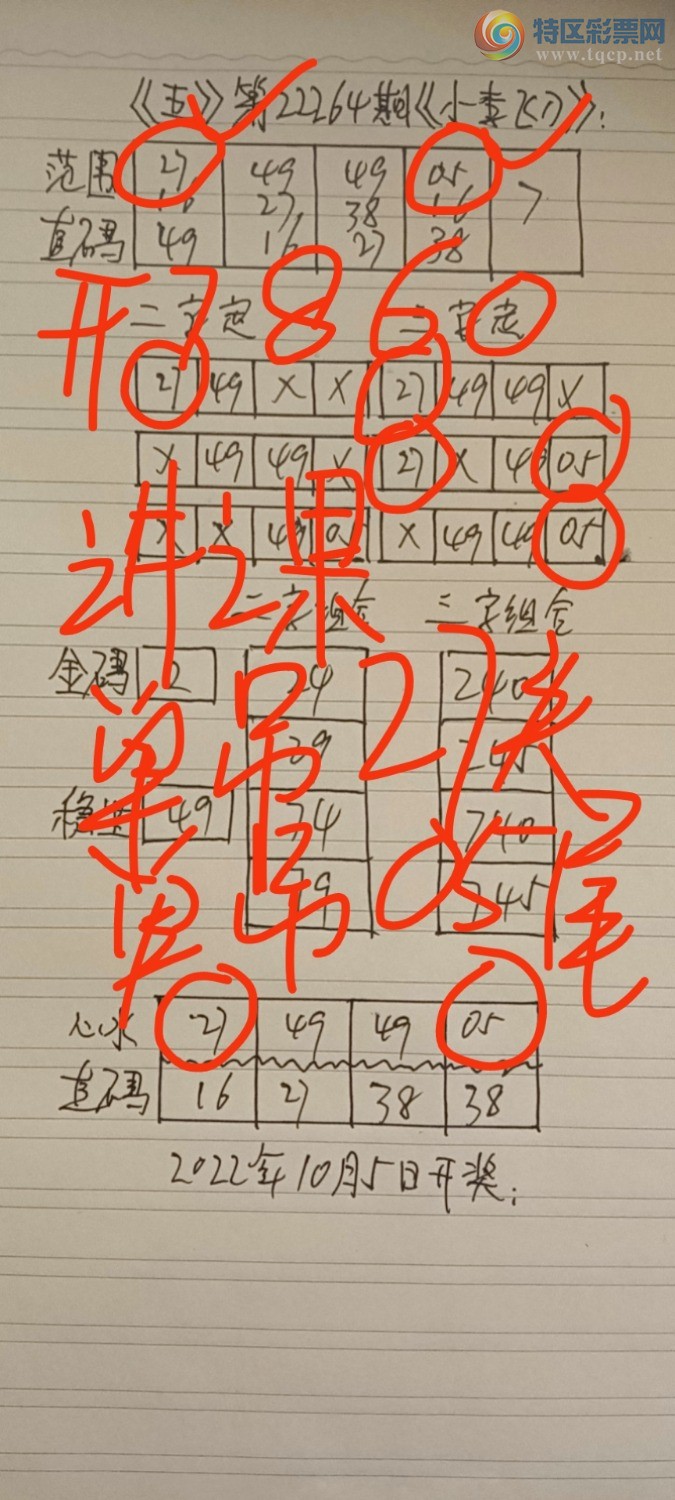 特区彩票网
www.tqcp.net
《五》第22264期《小李飞刀》:
范围 27 49 49 05 7
16 27 38 16
直码 49 16 27 38
开7860
二字定
27 49 X X 27 49 49 X
X 49 49 X 27 X 49 05
X X 49 05 X 49 49 05
讲课
二字组合 三字组合
金码 2 24 240
29 245
稳 49 74 740
79 745
单吊27头
单吊05尾
心水 27 49 49 05
直码 16 27 38 38
2022年10月5日开奖: